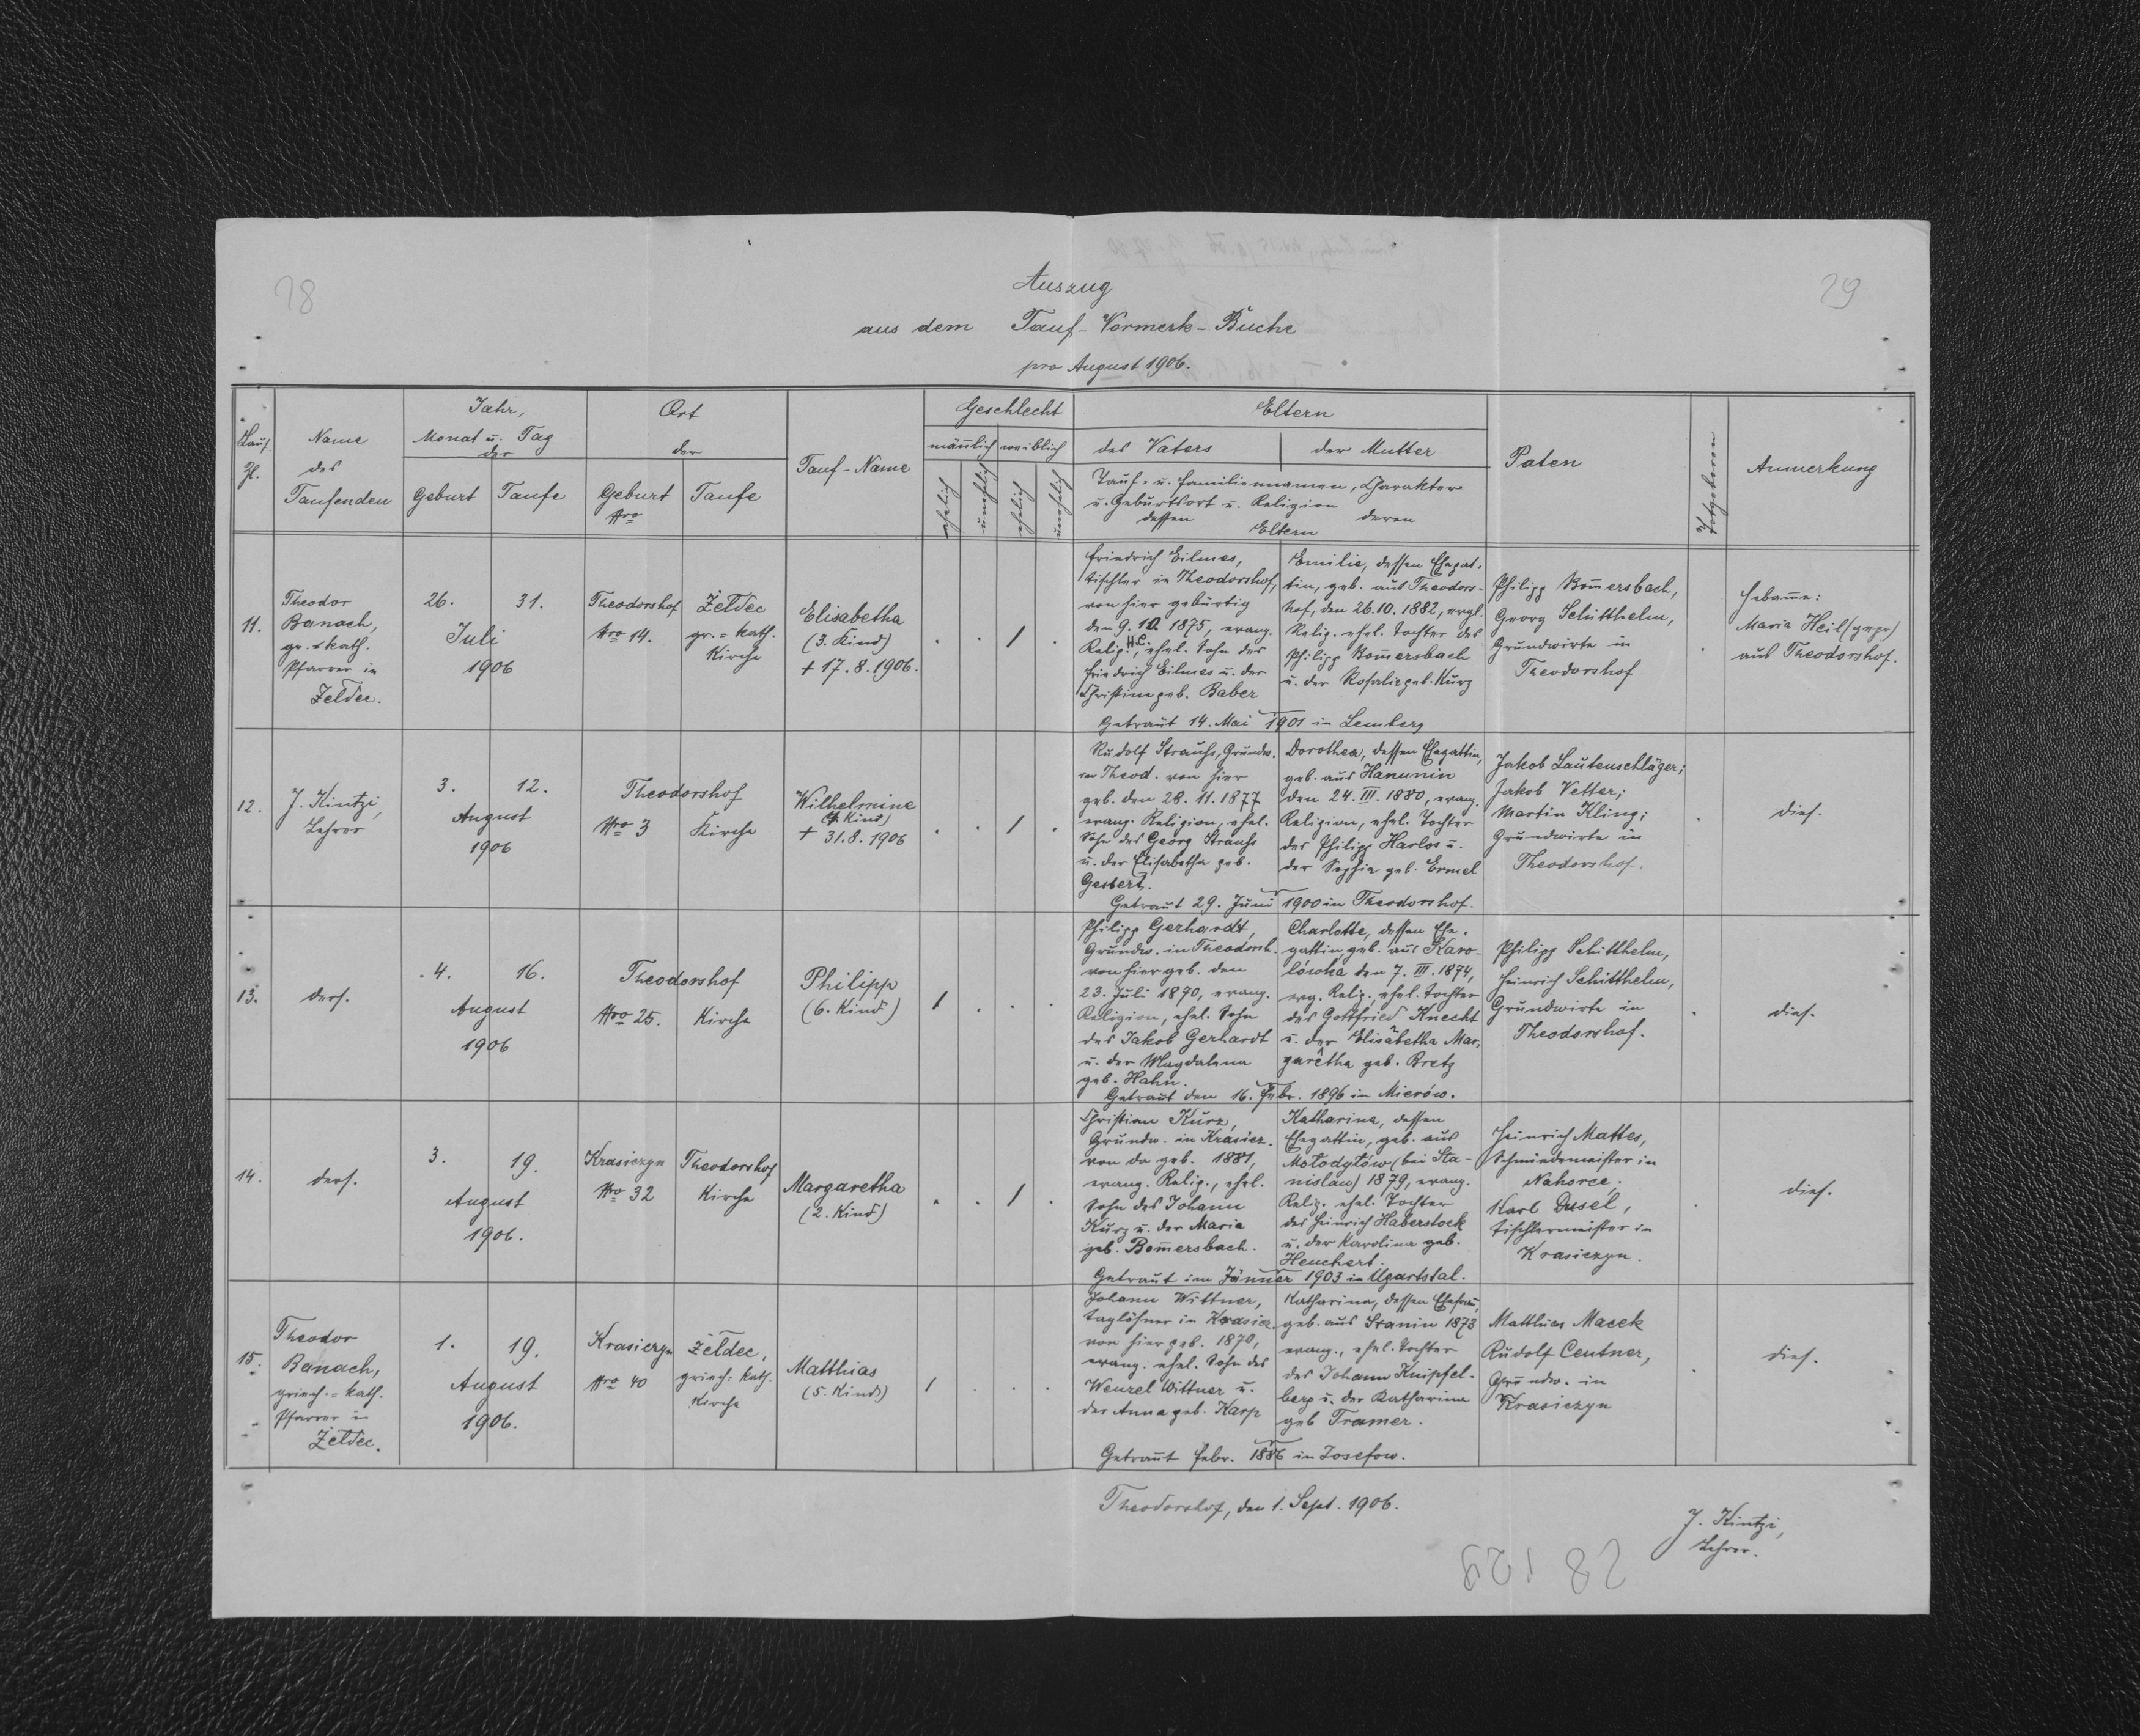 28
29
Auszug
aus dem Tauf-Vormerk-Buche
pro August 1906.
Lauf.
Zl.
Name
des
Taufenden
Jahr,
Monat u. Tag
der
Geburt
Taufe
Ort
der
Geburt
Nro
Taufe
Tauf-Name
Geschlecht
mänlich
weiblich
ehelich
unehelich
ehelich
unehelich
Eltern
des Vaters
der Mutter
Tauf- u. Familiennamen, Charakter
u. Geburtsort u. Religion
dessen
deren
Eltern
Paten
Totgeboren
Anmerkung
11.
Theodor
Banach,
gr.=kath.
Pfarrer in
Żełdec.
26.
31.
Juli
1906
Theodorshof
Nro 14.
Żełdec
gr.=kath.
Kirche
Elisabetha
(3. Kind)
+ 17.8.1906.
1
Friedrich Eilmes,
Tischler in Theodorshof,
von hier gebürtig
den 9.10.1875, evang.
Relig. H.C., ehel. Sohn des
Friedrich Eilmes u. der
Christine geb. Baber
Emilie, dessen Ehegat-
tin, geb. aus Theodors-
hof, den 26.10.1882, evgl.
Relig. ehel. Tochter des
Philipp Bomersbach
u. der Rosalie geb. Kurz
Getraut 14. Mai 1901 in Lemberg
Philipp Bomersbach,
Georg Schitthelm,
Grundwirte in
Theodorshof
Hebame:
Maria Heil (gepr)
aus Theodorshof.
12.
J. Kintzi,
Lehrer
3.
12.
August
1906
Theodorshof
Nro 3
Kirche
Wilhelmine
(4. Kind)
+ 31.8.1906
1
Rudolf Strauhs, Grundw.
in Theod. von hier
geb. den 28.11.1877
evang. Religion, ehel.
Sohn des Georg Strauhs
u. der Elisabetha geb.
Gesbert.
Dorothea, dessen Ehegattin,
geb. aus Hanunin
den 24.III.1880, evang.
Religion, ehel. Tochter
des Philipp Harlos u.
der Sophia geb. Ermel
Getraut 29. Juni 1900 in Theodorshof.
Jakob Lautenschläger;
Jakob Vetter;
Martin Kling;
Grundwirte in
Theodorshof.
dies.
13.
ders.
4.
16.
August
1906
Theodorshof
Nro 25.
Kirche
Philipp
(6. Kind)
1
Philipp Gerhardt,
Grundw. in Theodorsh.
von hier geb. den
23. Juli 1870, evang.
Religion, ehel. Sohn
des Jakob Gerhardt
u. der Magdalena
geb. Hahn.
Charlotte, dessen Ehe-
gattin, geb. aus Karo-
lówka den 7.III.1874,
evg. Relig., ehel. Tochter
des Gottfried Knecht
u. der Elisabetha Mar-
garetha geb. Bretz
Getraut den 16. Febr. 1896 in Mierów.
Philipp Schitthelm,
Heinrich Schitthelm,
Grundwirte in
Theodorshof.
dies.
14.
ders.
3.
19.
August
1906.
Krasiczyn
Nro 32
Theodorshof
Kirche
Margaretha
(2. Kind)
1
Christian Kurz,
Grundw. in Krasicz.
von da geb. 1881,
evang. Relig., ehel.
Sohn des Johann
Kurz u. der Maria
geb. Bomersbach.
Katharina, dessen
Ehegattin, geb. aus
Mołodyłów (bei Sta-
nislau) 1879, evang.
Relig. ehel. Tochter
des Heinrich Haberstock
u. der Karolina geb.
Heuchert.
Getraut im Jänner 1903 in Ugartstal.
Heinrich Mattes,
Schmiedemeister in
Nahorce;
Karl Dusel,
Tischlermeister in
Krasiczyn.
dies.
15.
Theodor
Banach,
griech.=kath.
Pfarrer in
Żełdec.
1.
19.
August
1906.
Krasiczyn
Nro 40
Żełdec,
griech. kath.
Kirche
Matthias
(5. Kind)
1
Johann Wittner,
Taglöhner in Krasicz.
von hier geb. 1870,
evang. ehel. Sohn des
Wenzel Wittner u.
der Anna geb. Karp
Katharina, dessen Ehefrau,
geb. aus Stanin 1873
evang., ehel. Tochter
des Johann Knipfel-
berg u. der Katharina
geb Tramer.
Getraut Febr. 1886 in Josefow.
Matthias Macek
Rudolf Ceutner,
Grundw. in
Krasiczyn
dies.
Theodorshof, den 1. Sept. 1906.
J. Kintzi,
Lehrer.
28 129